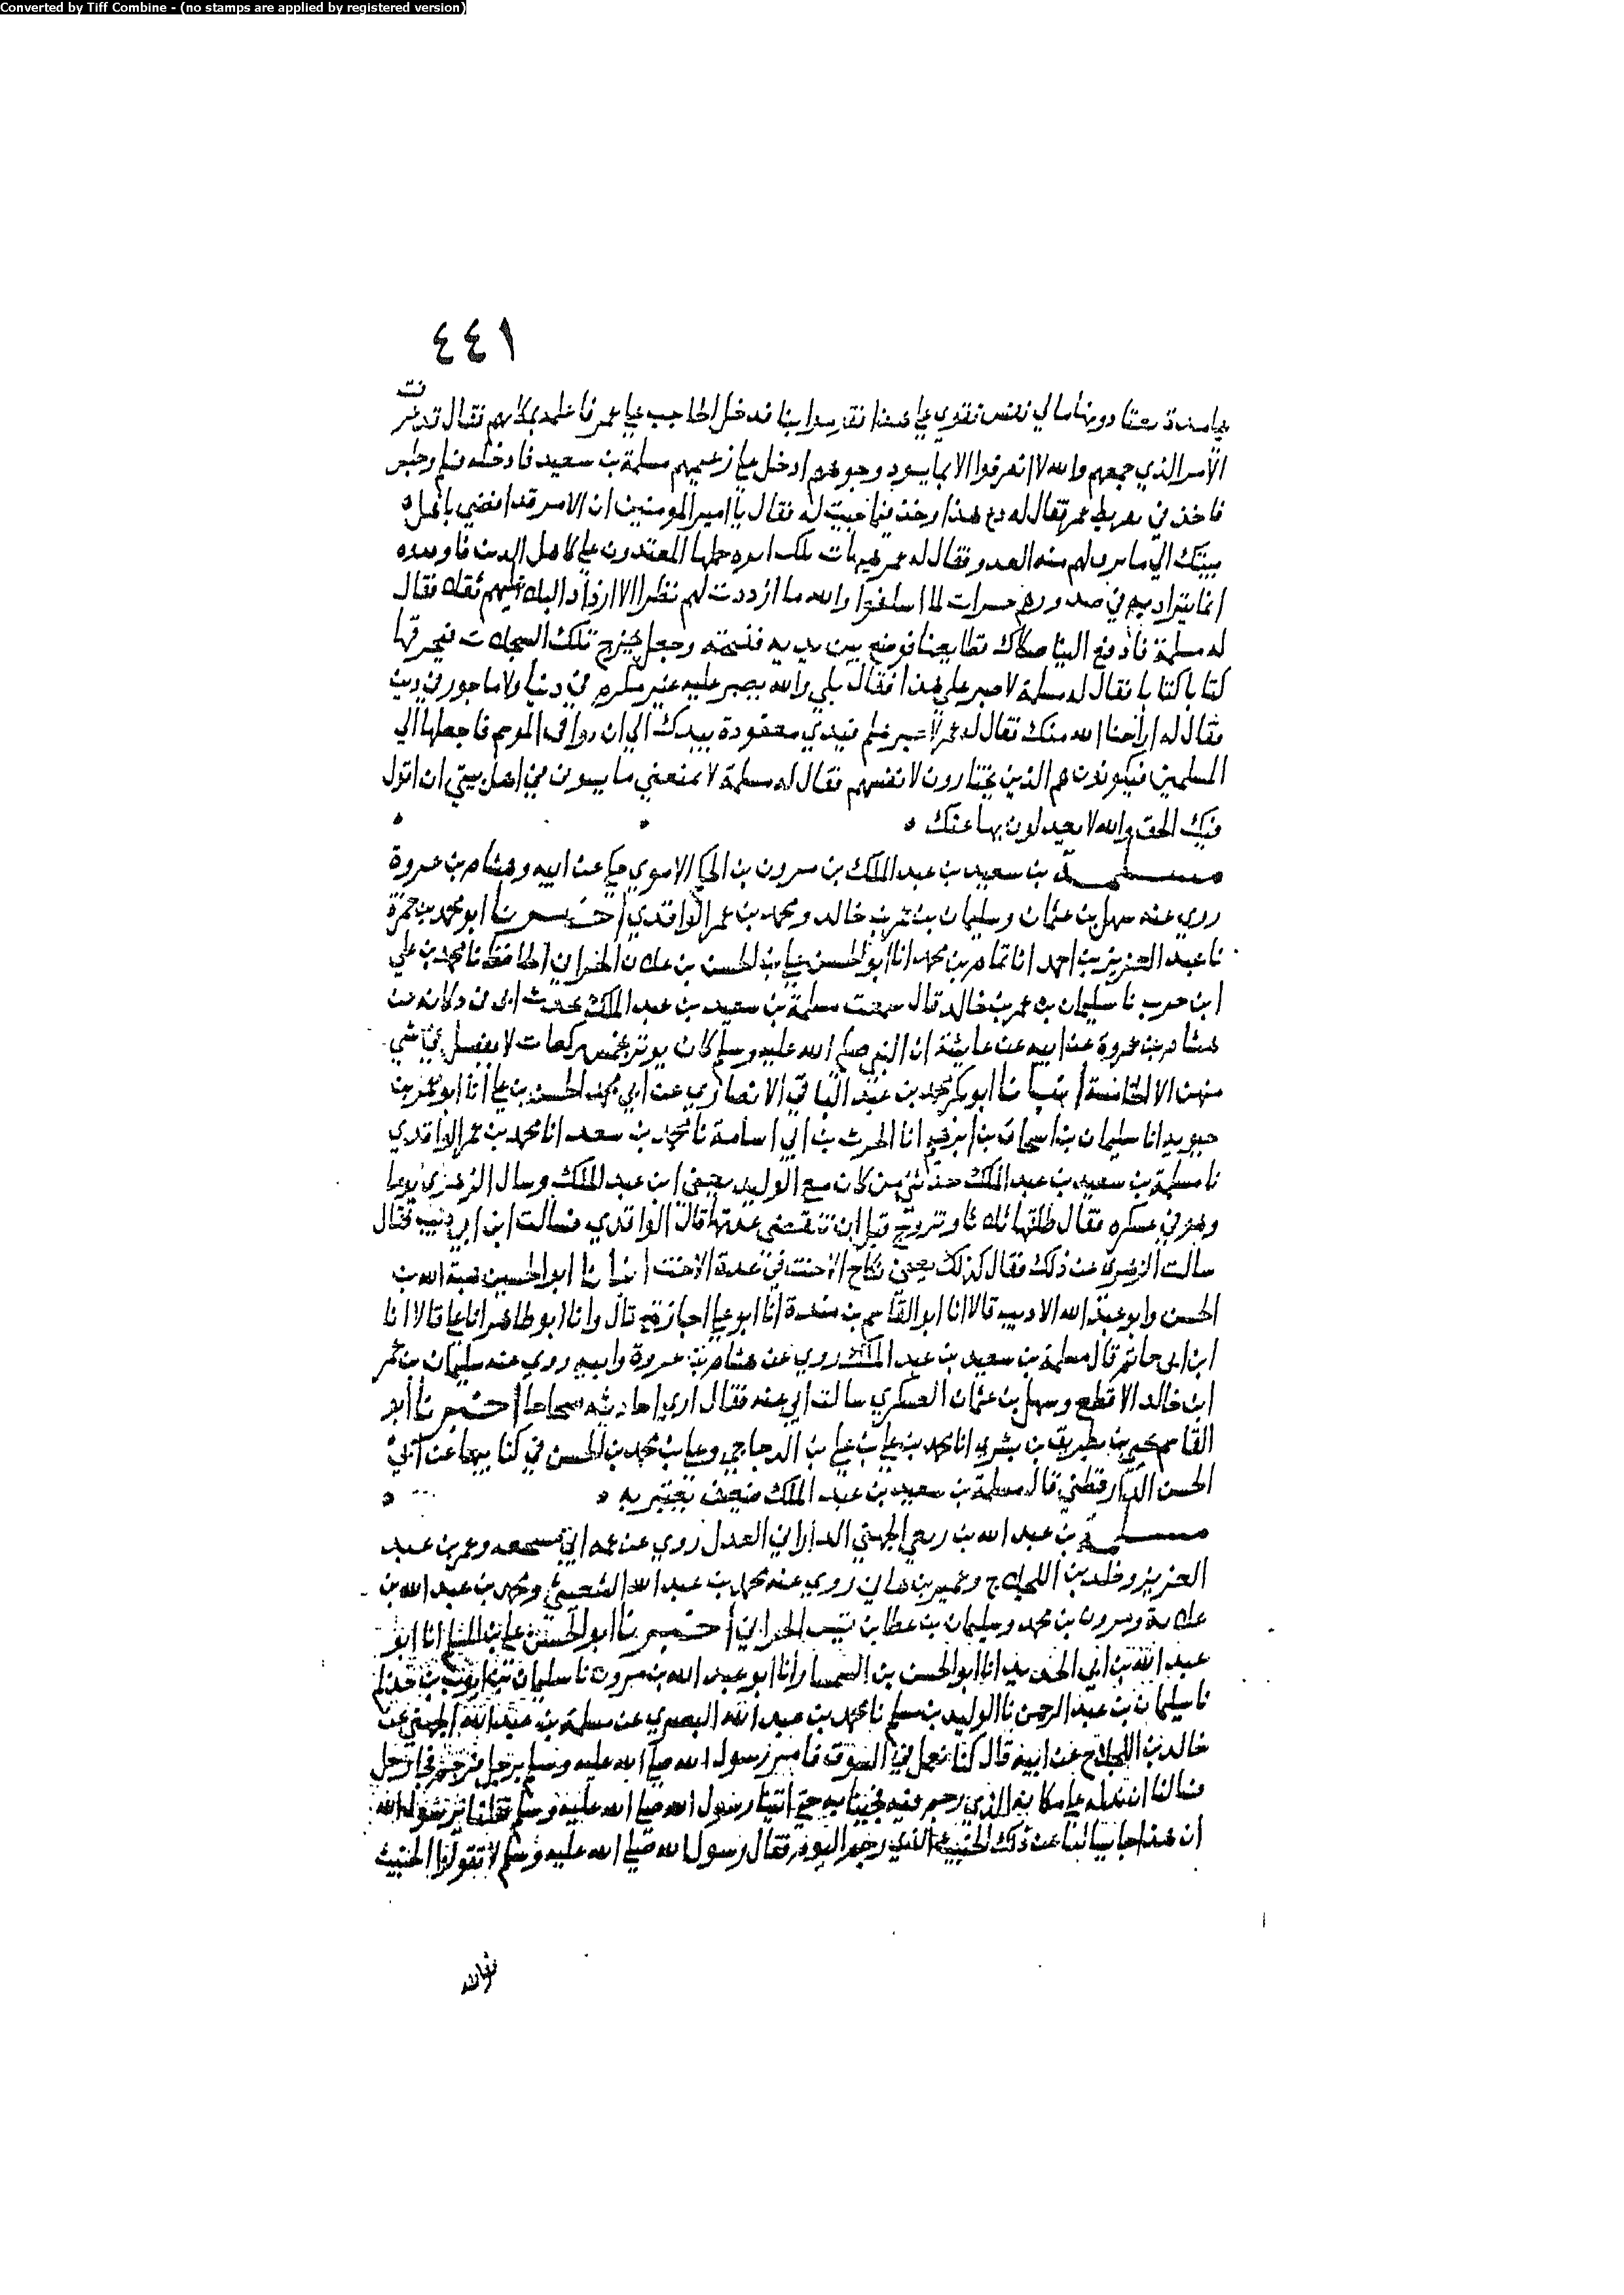 Converted by Tiff Combine - (no stamps are applied by registered version)
٤٤١
دونها مالي نفس تقوى على هذا فدخل الحاجب على عمر فاعلمه فقال قد عرفت
الامر الذي جمعهم والله لا انصرفوا الا بما يسود وجوههم ادخل علي زعيمهم مسلمة بن سعيد فادخله فسلم وجلس
فاخذ في عمر فقال له دع هذا وخذ فيما جيت له فقال يا امير المومنين ان الامر قد افضى باهل
بيتك الى ما منه العدو فقال له عمر هيهات تلك حملها المعتدون على كاهل الدين
انما يتراد في صدورهم حسرات لما اسلفوا والله ما ازددت لهم نظرا الا ازداد البلا عليهم ثقلا فقال
له مسلمة فادفع الينا صكاك قطايعنا فوضع بين يديه وجعل يخرج تلك السجلات فيحرقها
كتابا كتابا فقال له مسلمة لا صبر على هذا فقال بلى والله يصبر عليه غير مكره في دنيا ولا ماجور في دين
فقال له اراحنا الله منك فقال له عمر معقودة بيدك الى ان الموسم فاجعلها الى
المسلمين فيكونون هم الذين يختارون لانفسهم فقال له مسلمة لا يمنعني ما من اهل بيتي ان اقول
فيك الحق والله لا يعدلون بها عنك ه
مسلمة بن سعيد بن عبد الملك بن مرون بن الحكم الاموي حكى عن ابيه وهشام بن عروة
روى عنه سهل بن عثمان وسليمان بن عمر بن خالد ومحمد بن عمر الواقدي اخبرنا ابو محمد بن حمزة
نا عبد العزيز بن احمد انا تمام بن محمد انا ابو الحسن علي بن الحسن بن علان الحراني الحافظ نا محمد بن علي
ابن حرب نا سليمان بن عمر بن خالد قال سمعت مسلمة بن سعيد بن عبد الملك يحدث ابي عن
هشام بن عروة عن ابيه عن عايشة ان النبي صلى الله عليه وسلم كان يوتر بخمس ركعات لا يفصل في شي
منهن الا الخامسة انبانا ابو بكر محمد بن عبد الباقي الانصاري عن ابي محمد الحسن بن علي انا ابو عمر بن
حيويه انا سليمان بن اسحاق بن ابرهيم انا الحرث بن ابي اسامة نا محمد بن سعد انا محمد بن عمر الواقدي
نا مسلمة بن سعيد بن عبد الملك حدثني من كان مع الوليد يعني ابن عبد الملك وسال الزهري يوما
وهو في عسكره فقال طلقتها ثلاثا وتزوج قبل ان تنقضي عدتها قال الواقدي فسالت ابن ابي ذئب فقال
سالت الزهري عن ذلك فقال كذلك يعني نكاح الاخت في عدة الاخت انبانا ابو الحسين هبة الله بن
الحسن وابو عبد الله الاديب قالا انا ابو القاسم بن مندة انا ابو علي اجازة قال وانا ابو طاهر انا علي قالا انا
ابن ابي حاتم قال مسلمة بن سعيد بن عبد الملك روى عن هشام بن عروة وابيه روى عنه سليمان بن عمر
ابن خالد الاقطع وسهل بن عثمان العسكري سالت ابي عنه فقال ارى احاديثه صحاحا اخبرنا ابو
القاسم يحيى بن بطريق بن بشرى انا محمد بن علي بن علي بن الدجاجي وعلي بن محمد بن الحسن في كتابيهما عن ابي
الحسن الدارقطني قال مسلمة بن سعيد بن عبد الملك ضعيف يعتبر به ه
مسلمة بن عبد الله بن ربعي الجهني الداراني العدل روى عن عمه ابي مسجعه وعمر بن عبد
العزيز وخلد بن اللجلاج وعمير بن هاني روى عنه محمد بن عبد الله الشعيثي ومحمد بن عبد الله بن
علاثة ومرون بن محمد وسليمان بن عطا بن قيس الحراني اخبرنا ابو الحسن علي بن المسلم انا ابو
عبد الله بن ابي الحديد انا ابو الحسن بن السمسار انا ابو عبد الله بن مرون نا سليمان بن ايوب بن حذلم
نا سليمان بن عبد الرحمن نا الوليد بن مسلم نا محمد بن عبد الله البصري عن مسلمة بن عبد الله الجهني عن
خالد بن اللجلاج عن ابيه قال كنا نعمل في السوق فامر رسول الله صلى الله عليه وسلم برجل فرجم فجا رجل
فسالنا ان ندله على مكانه الذي رجم فيه فجينا به حتى اتينا رسول الله صلى الله عليه وسلم فقلنا يرسول الله
ان هذا جا يسالنا عن ذلك الخبيث الذي رجم اليوم فقال رسول الله صلى الله عليه وسلم لا تقولوا الخبيث
فوالله